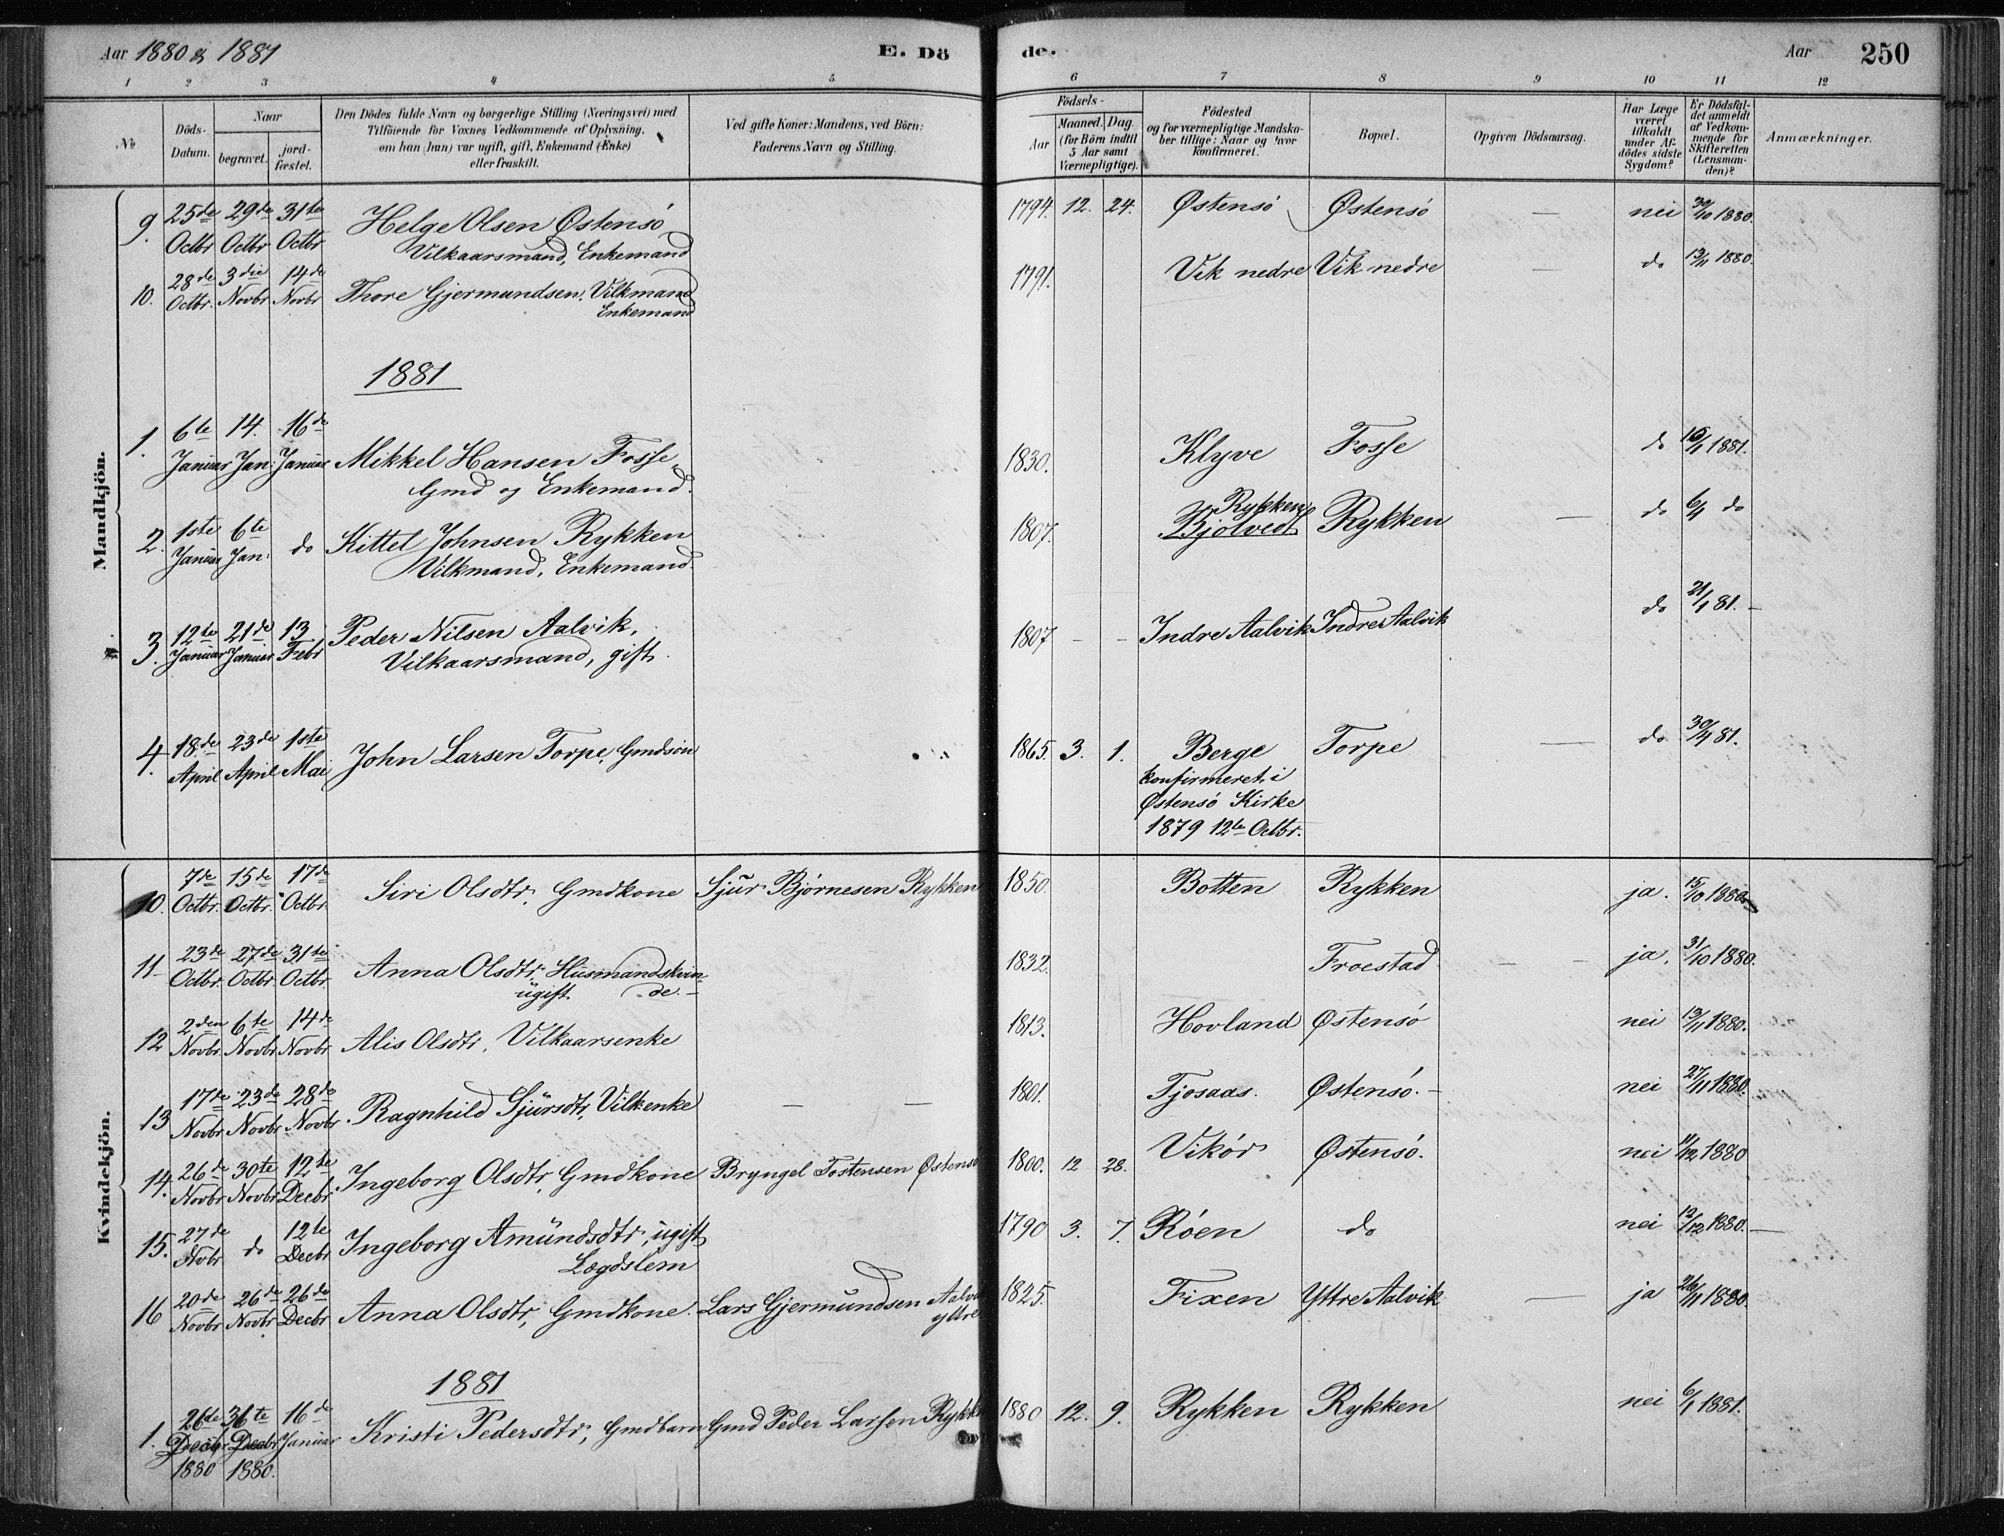 Aar 1880 & 1881
E. Dö
de.
Aar
250
1 2 3 4 5 6 7 8 9 10 11 12
No
Döds-
Datum.
Naar
begravet.
jord-
fæstet.
Den Dödes fulde Navn og borgerlige Stilling (Næringsvei) med
Tilföiende for Voxnes Vedkommende af Oplysning,
om han (hun) var ugift, gift, Enkemand (Enke)
eller fraskilt.
Ved gifte Koner: Mandens, ved Börn:
Faderens Navn og Stilling.
Födsels-
Aar
Maaned. Dag.
(for Börn indtil
5 Aar samt
Værnepligtige).
Födested
og for værnepligtige Mandska-
ber tillige: Naar og hvor
konfirmeret.
Bopæl.
Opgiven Dödsaarsag.
Har Læge
været
tilkaldt
under Af-
dödes sidste
Sygdom?
Er Dödsfal-
det anmeldt
af Vedkom-
mende for
Skifteretten
(Lensman-
den)?
Anmærkninger.
Mandkjön.
9. 25de Octbr 29de Octbr 31te Octbr Helge Olsen Østensö 1794. 12. 24. Østensö Østensö — nei 30/10 1880.
Vilkaarsmand, Enkemand
10. 28de Octbr. 3die Novbr 14de Novbr Thore Gjermundsen, Vilkmand 1791. Vik nedre Vik nedre — do 13/11 1880.
Enkemand
1881
1. 6te Januar 14. Jan: 16de Januar Mikkel Hansen Fosse, 1830. Klyve Fosse do 16/1 1881.
Gmd og Enkemand.
2. 1ste Januar 6te Jan: do Kittel Johnsen Rykken 1807. Rykken Bjölvedt Rykken — do 6/1 do
Vilkmand, Enkemand.
3. 12te Januar 21de Januar 13 Febr Peder Nilsen Aalvik, 1807 - - Indre Aalvik Indre Aalvik do 21/1 81. -
Vilkaarsmand, gift.
4. 18de April 23de April 1ste Mai John Larsen Torpe, Gmdsön 1865. 3. 1. Berge Torpe — do 30/4 81.
konfirmeret i
Østensö Kirke
1879 12te Octbr.
Kvindekjön.
10. 7de Octbr. 15de Octbr. 17de Octbr. Siri Olsdtr, Gmdkone Sjur Björnesen Rykken 1850. Botten Rykken ja. 15/10 1880.
11 23de Octbr. 27de Octbr. 31te Octbr. Anna Olsdtr, Husmandskvin- 1832. Froestad - - ja, 31/10 1880.
ugift. de. -
12 2den Novbr. 6te Novbr 14de Novbr Alis Olsdtr, Vilkaarsenke 1813. Hovland Østensö nei 13/11 1880.
13 17de Novbr 23de Novbr 28de Novbr Ragnhild Sjursdtr, Vilkenke — — 1801. Tjosaas. Østensö. - nei 27/11 1880.
14. 26de Novbr 30te Novbr 12te Decbr Ingeborg Olsdtr, Gmdkone Bryngel Tostensen Östensö 1800. 12 28. Vikör Østensö. nei 11/12 1880
15. 27de Novbr do 12te Decbr Ingeborg Amundsdtr, ugift 1790 3. 7. Röen do nei 12/12 1880. —
Lægdslem
16 20de Novbr 26de Novbr 26de Decbr Anna Olsdtr, Gmdkone. Lars Gjermundsen Aalvik 1825. Fixen Yttre Aalvik — ja 26/11 1880.
yttre
1881
1. 26de Decbr 1880 Decbr 1880. 16de Januar Kristi Pedersdtr, Gmdbarn Gmd Peder Larsen Rykken 1880 12. 9. Rykken Rykken nei 6/1 1881.